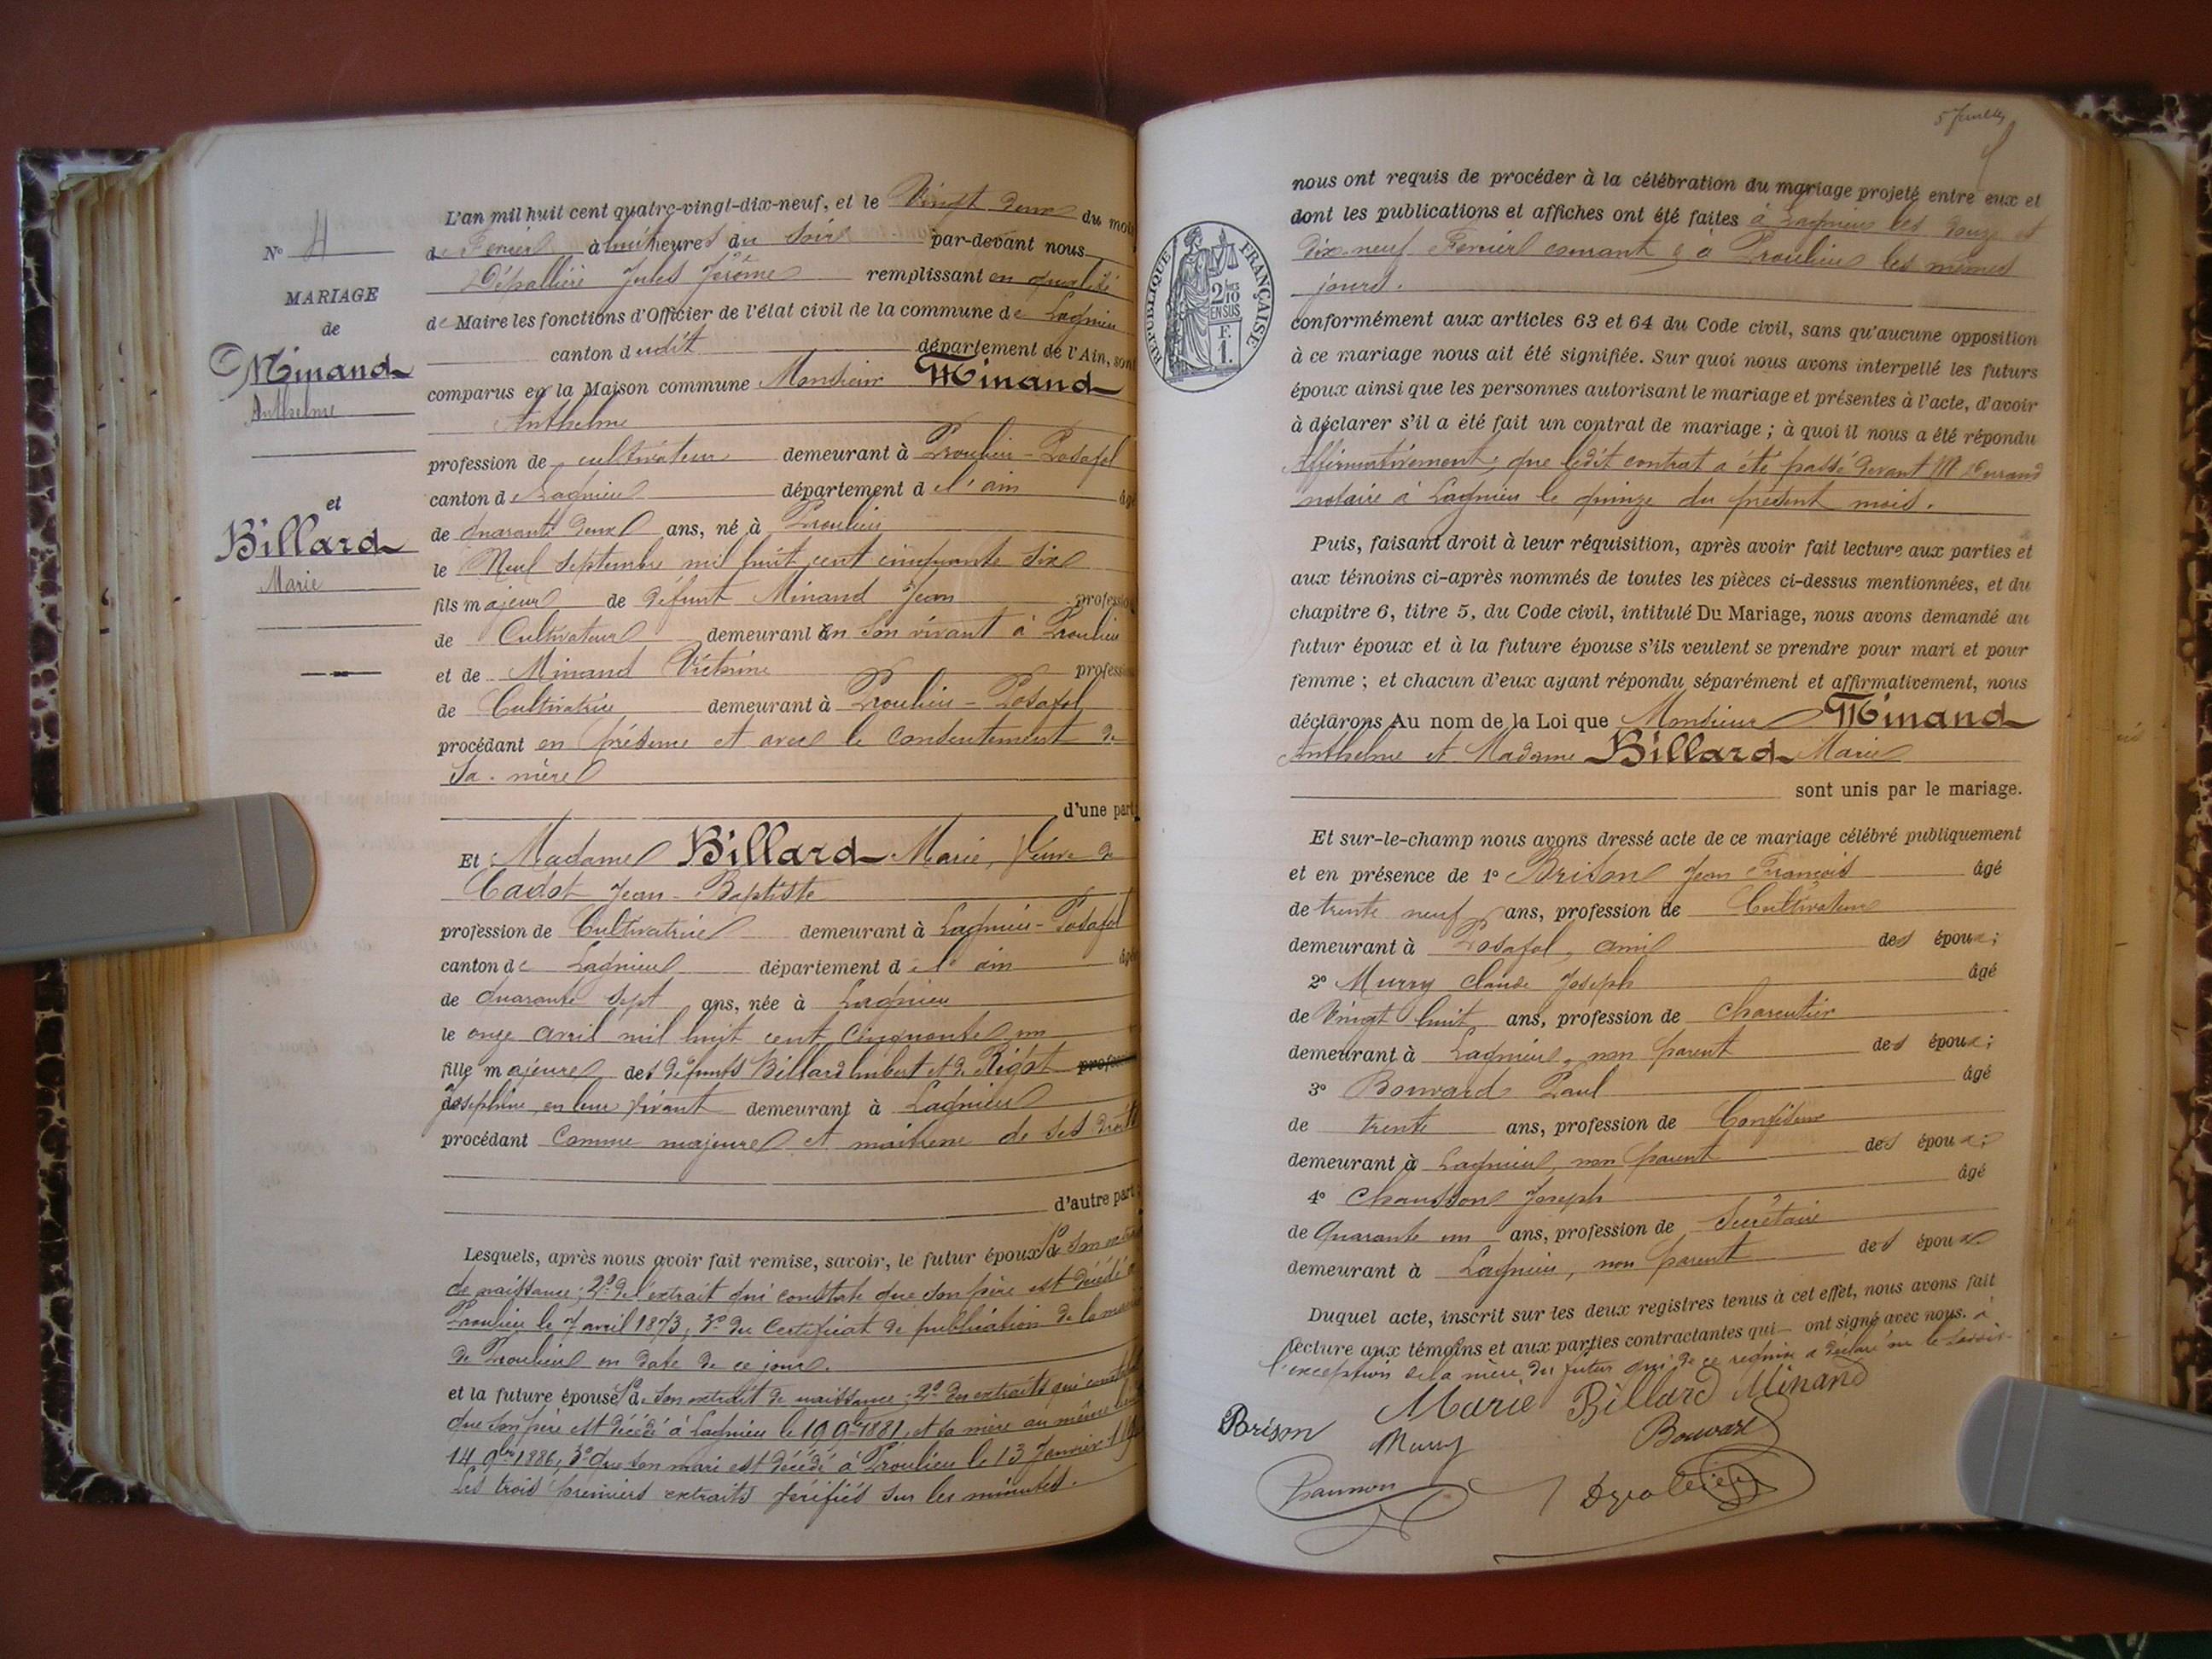 N° 4
MARIAGE
de
Minand
Anthelme
et
Billard
Marie
L'an mil huit cent quatre-vingt-dix-neuf, et le Vingt deux du mois
de Fevrier à huit heures du soir par-devant nous
Dépallière Jules Jérôme remplissant en qualité
de Maire les fonctions d'Officier de l'état civil de la commune de Lagnieu
canton dudit département de l'Ain, sont
comparus en la Maison commune Monsieur Minand
Anthelme
profession de cultivateur demeurant à Proulieu - Posafol
canton de Lagnieu département de l'ain âgé
de quarante deux ans, né à Proulieu
le Neuf septembre mil huit cent cinquante six
fils majeur de défunt Minand Jean profession
de Cultivateur demeurant en son vivant à Proulieu
et de Minand Victorine profession
de Cultivatrice demeurant à Proulieu - Posafol
procédant en présence et avec le consentement de
sa mère
d'une part
Et Madame Billard Marie, Veuve de
Cadot Jean-Baptiste
profession de Cultivatrice demeurant à Lagnieu - Posafol
canton de Lagnieu département de l'ain âgée
de quarante sept ans, née à Lagnieu
le onze avril mil huit cent cinquante un
fille majeure des défunts Billard humbert et de Rigot profession
Joséphine, en leur vivant demeurant à Lagnieu
procédant comme majeure et maitresse de ses droits
d'autre part
Lesquels, après nous avoir fait remise, savoir, le futur époux 1° de son extrait
de naissance; 2° de l'extrait qui constate que son père est décédé à
Proulieu le 7 avril 1873; 3° du Certificat de publication de la mairie
de Proulieu en date de ce jour.
et la future épouse 1° de son extrait de naissance; 2° des extraits qui constatent
que son père est décédé à Lagnieu le 19 9bre 1881, et sa mère au même lieu
14 9bre 1886, 3° que son mari est décédé à Proulieu le 13 Janvier
Les trois premiers extraits vérifiés sur les minutes.
5 feuillet
REPUBLIQUE FRANÇAISE
2/10 EN SUS
F. 1.
nous ont requis de procéder à la célébration du mariage projeté entre eux et
dont les publications et affiches ont été faites à Lagnieu les douze et
dix-neuf Fevrier courant & à Proulieu les mêmes
jours.
conformément aux articles 63 et 64 du Code civil, sans qu'aucune opposition
à ce mariage nous ait été signifiée. Sur quoi nous avons interpellé les futurs
époux ainsi que les personnes autorisant le mariage et présentes à l'acte, d'avoir
à déclarer s'il a été fait un contrat de mariage ; à quoi il nous a été répondu
Affirmativement; que ledit contrat a été passé devant M Durand
notaire à Lagnieu le quinze du présent mois.
Puis, faisant droit à leur réquisition, après avoir fait lecture aux parties et
aux témoins ci-après nommés de toutes les pièces ci-dessus mentionnées, et du
chapitre 6, titre 5, du Code civil, intitulé Du Mariage, nous avons demandé au
futur époux et à la future épouse s'ils veulent se prendre pour mari et pour
femme ; et chacun d'eux ayant répondu séparément et affirmativement, nous
déclarons Au nom de la Loi que Monsieur Minand
Anthelme et Madame Billard Marie
sont unis par le mariage.
Et sur-le-champ nous avons dressé acte de ce mariage célébré publiquement
et en présence de 1° Brison Jean François âgé
de trente neuf ans, profession de Cultivateur
demeurant à Posafol, ami des époux;
2° Murry Claude Joseph âgé
de Vingt huit ans, profession de charcutier
demeurant à Lagnieu, non parent des époux;
3° Bouvard Paul âgé
de trente ans, profession de Confiseur
demeurant à Lagnieu, non parent des époux;
4° Chausson Joseph âgé
de Quarante un ans, profession de Secrétaire
demeurant à Lagnieu, non parent des époux
Duquel acte, inscrit sur les deux registres tenus à cet effet, nous avons fait
lecture aux témoins et aux parties contractantes qui ont signé avec nous. à
l'exception de la mère du futur qui de ce requise a déclaré ne le savoir
Marie Billard Minand
Brison Murry Bouvard